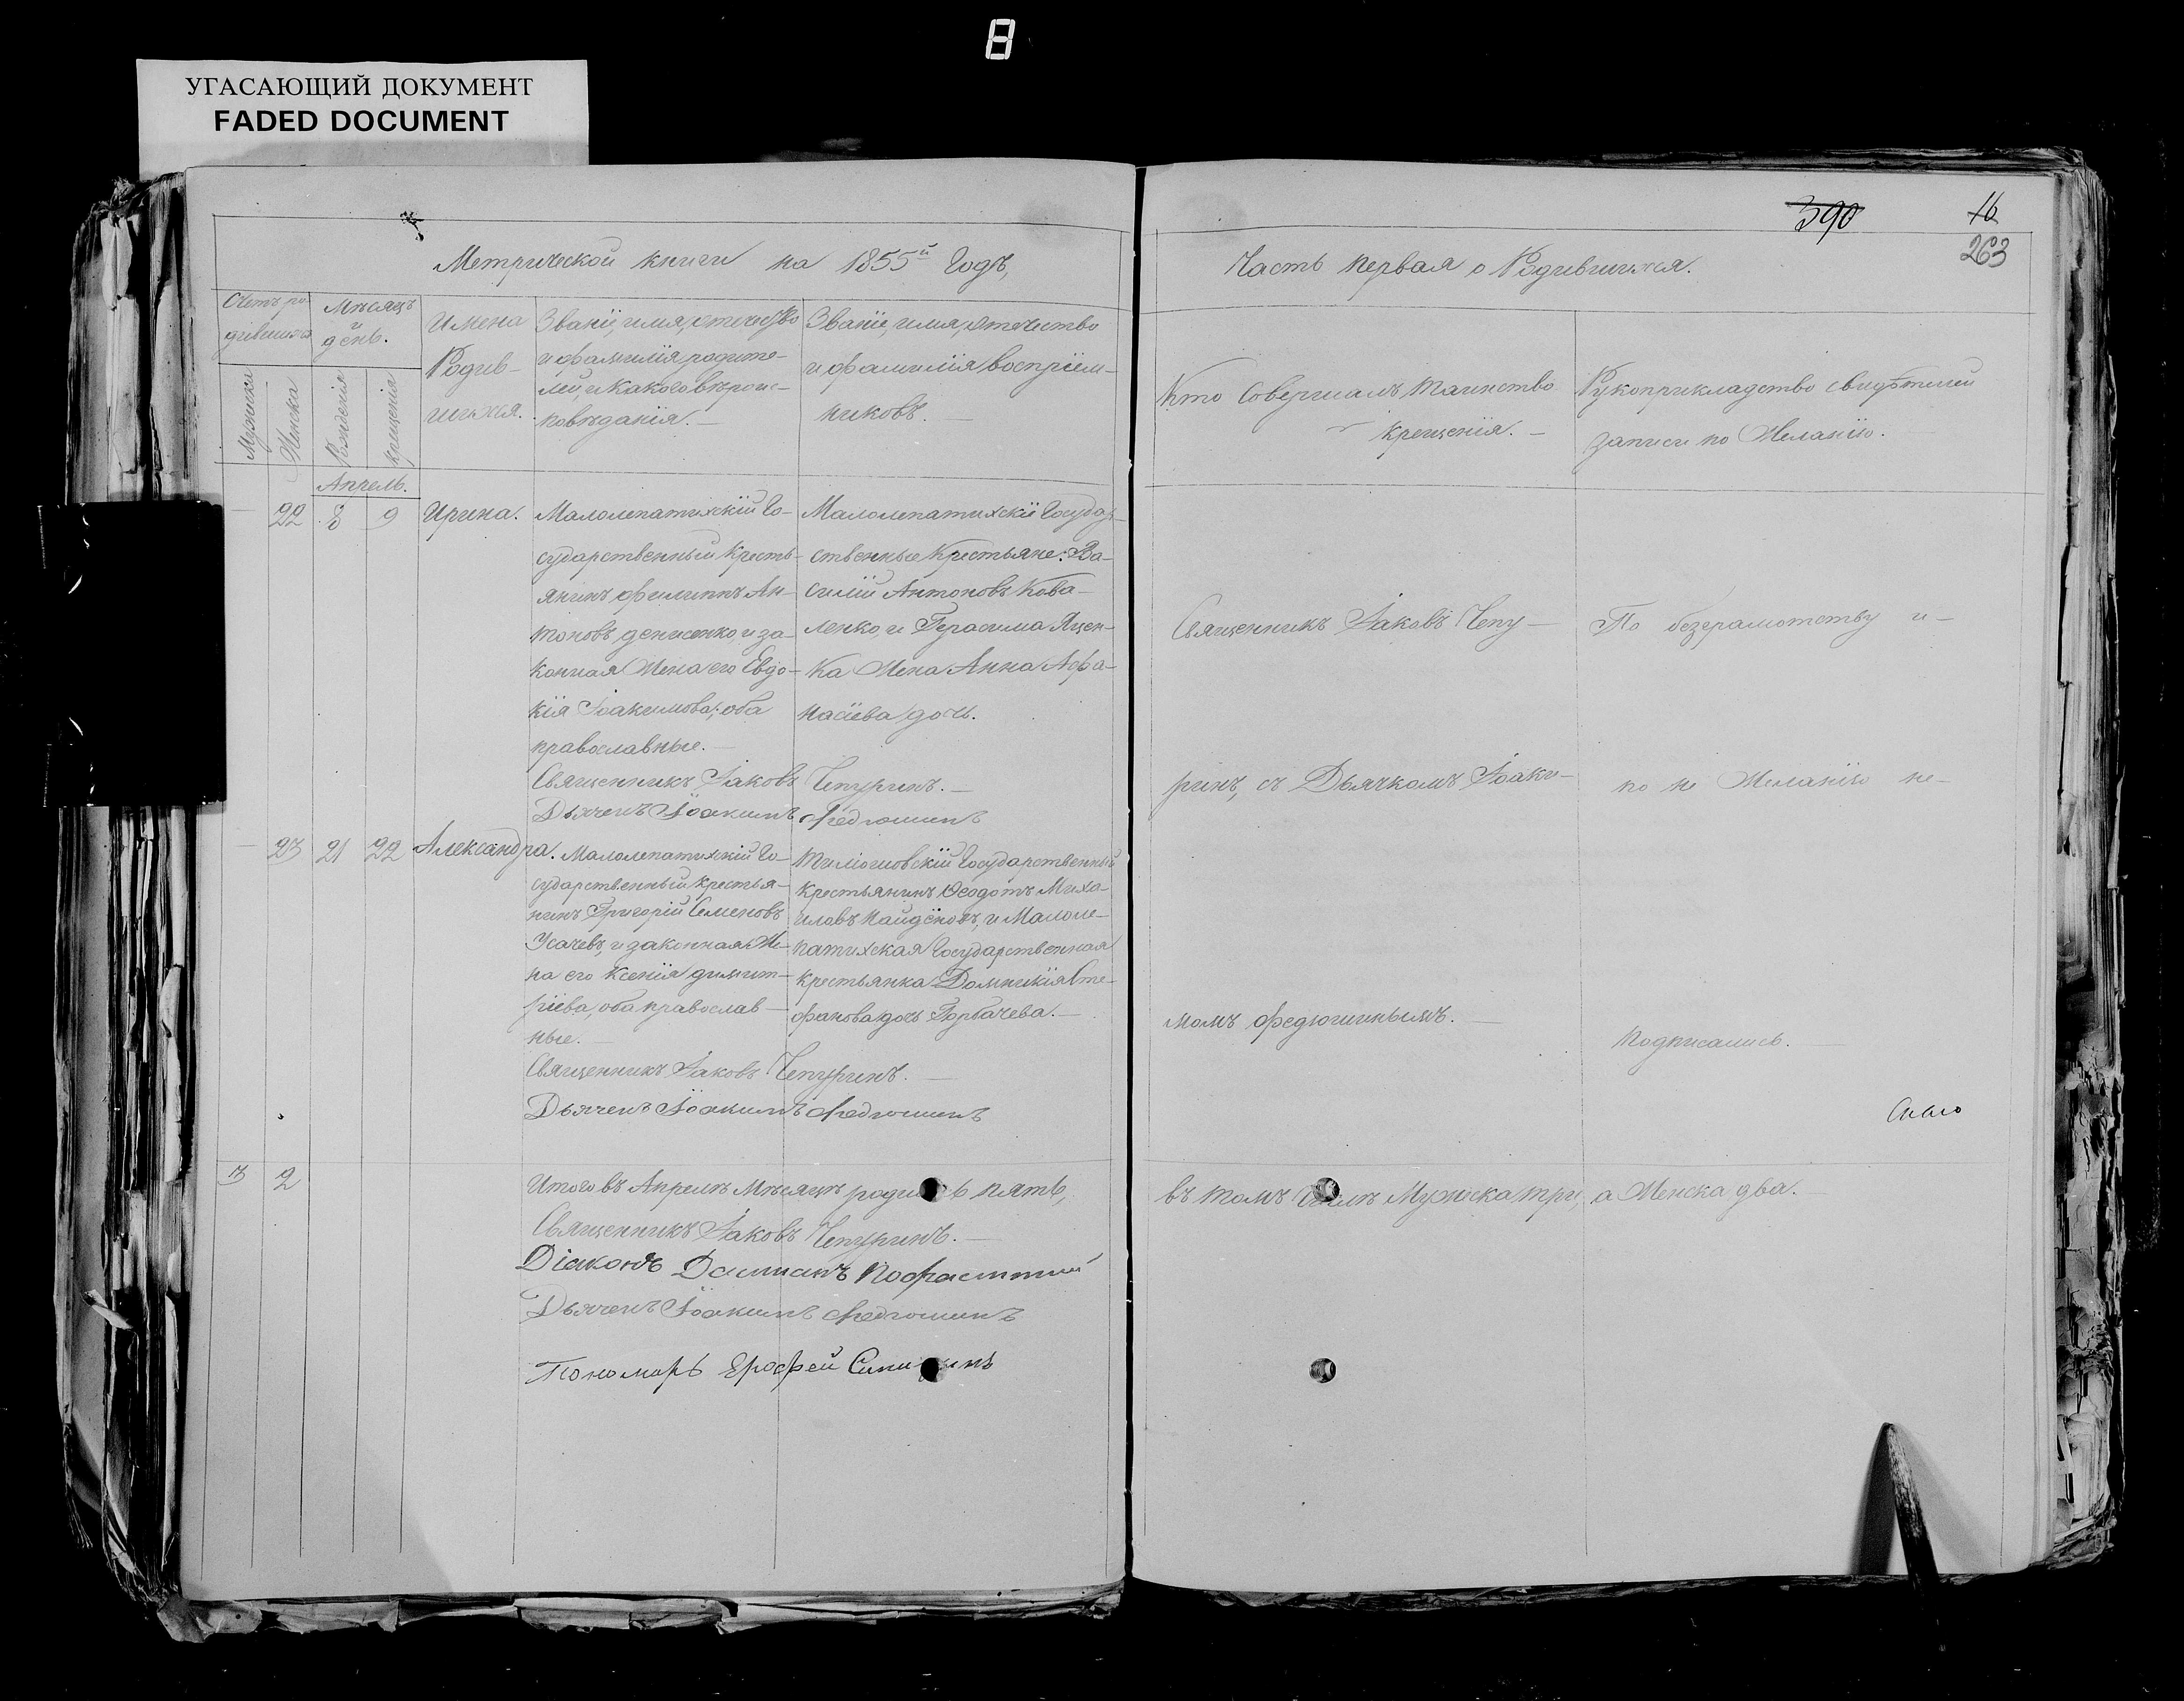 8
УГАСАЮЩИЙ ДОКУМЕНТ
FADED DOCUMENT
Метрической книги на 1855й Годъ,
Счетъ ро-
дившихся
Мужеска
Женска
Мѣсяцъ
и
день.
Рожденія
крещенія
Имена
Родив-
шихся.
Званіе, имя, отечество
и фамилія родите-
лей, и какого вѣроис-
повѣданія. —
Званіе, имя, отечество
и фамилія воспріем-
никовъ.
Апрель.
— 22 8 9 Ирина.
Малолепатихскій Го-
сударственный кресть-
янинъ Филиппъ Ан-
тоновъ Денисенко и за-
конная Жена его Евдо-
кія Іоакимова; оба
православные. —
Малолепатихскіе Государ-
ственные Крестьяне: Ва-
силій Антоновъ Кова-
ленко, и Герасима Яцен-
ка Жена Анна Афа-
насіева дочь.
Священникъ Іаковъ Чепуринъ. —
Дьячекъ Іоакимъ Федюшинъ
— 23 21 22 Александра.
Малолепатихскій Го-
сударственный крестья-
нинъ Григорій Семеновъ
Усачевъ, и законная Же-
на его Ксенія Димит-
ріева, оба православ-
ные. —
Государственный
крестьянинъ Ѳеодотъ Миха-
иловъ Найдёновъ, и Малоле-
патихская Государственная
крестьянка Домникія Сте-
фанова дочь Горбачева. —
Священникъ Іаковъ Чепуринъ. —
Дьячекъ Іоакимъ Федюшинъ
3 2
Итого въ Апрелѣ Мѣсяцѣ пять,
Священникъ Іаковъ Чепуринъ. —
Діаконъ
Дьячекъ Іоакимъ Федюшинъ
Пономарь Ерофей
390
16
263
Часть первая о Родившихся.
Кто Совершалъ таинство
крещенія. —
Рукоприкладство свидѣтелей
записи по Желанію.
Священникъ Іаковъ Чепу-
ринъ, съ Дьячкомъ Іоаки-
момъ Федюшинымъ. —
По безграмотству и-
по не Желанію не-
подписались. —
въ томъ Мужеска три, а Женска два. —